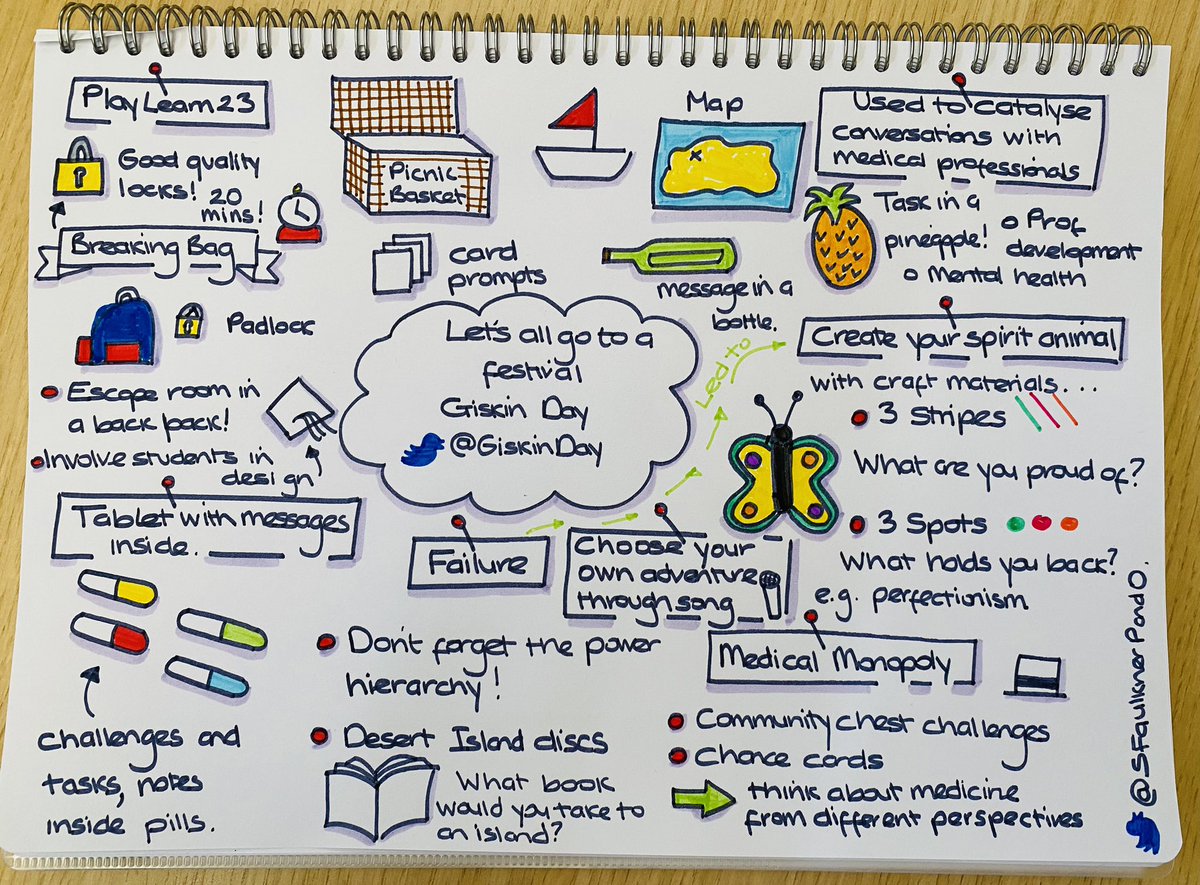 PlayLearn23
Good quality
locks!
20
mins!
Breaking Bag
Padlock
Escape room in
a back pack!
Involve students in
design
Tablet with messages
inside.
challenges and
tasks, notes
inside pills.
Picnic
Basket
card
prompts
Map
message in a
bottle.
Let's all go to a
festival
Giskin Day
@GiskinDay
Used to catalyse
conversations with
medical professionals
Task in a
pineapple!
o Prof
development
o Mental health
Led to
Create your spirit animal
with craft materials...
3 Stripes
What are you proud of?
3 Spots
What holds you back?
e.g. perfectionism
Failure
Choose your
own adventure
through song
Don't forget the power
hierarchy!
Desert Island discs
What book
would you take to
an island?
Medical Monopoly
Community chest challenges
Chance cards
think about medicine
from different perspectives
@SFaulknerPandO.